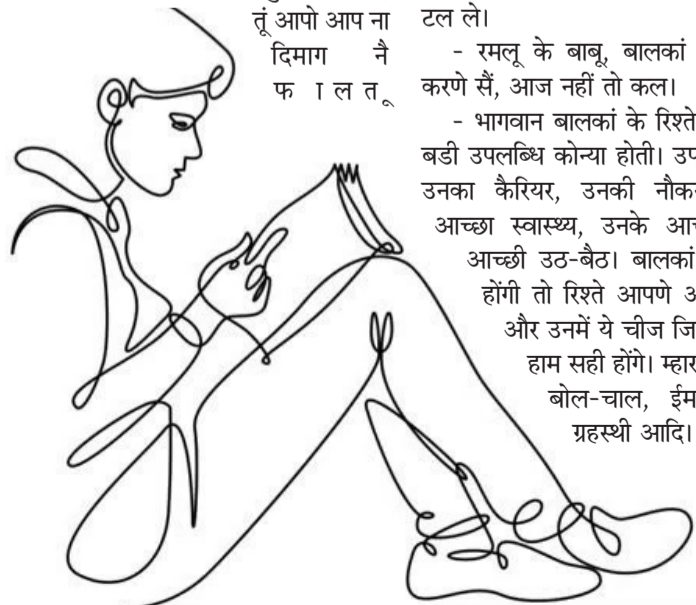 तूं आपो आप ना
दिमाग नै
फालतू
टल ले।
- रमलू के बाबू, बालकां
करणे सैं, आज नहीं तो कल।
- भागवान बालकां के रिश्ते
बडी उपलब्धि कोन्या होती। उप
उनका कैरियर, उनकी नौक
आच्छा स्वास्थ्य, उनके आच
आच्छी उठ-बैठ। बालकां
होंगी तो रिश्ते आपणे अ
और उनमें ये चीज जि
हाम सही होंगे। म्हार
बोल-चाल, ईम
ग्रहस्थी आदि।